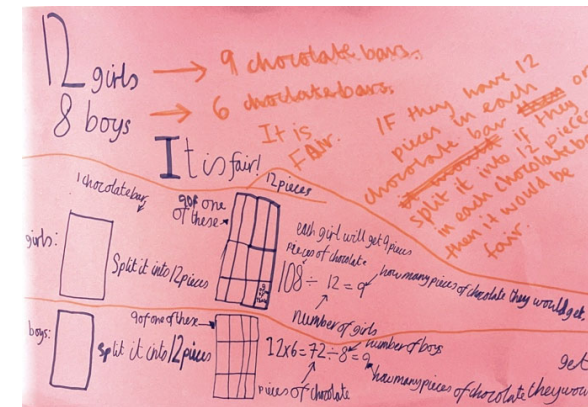 12 girls → 9 chocolate bars.
8 boys → 6 choclate bars.
It is
FAIR.
It is fair!
IF they have 12
pieces in each
chocolate bar or
if they
split it into 12 pieces
in each chocolate bar
then it would be
fair.
1 chocolate bar
12 pieces
9 of one
of these
girls:
Split it into 12 pieces
each girl will get 9 pieces
pieces of chocolate
108 ÷ 12 = 9
how many pieces of chocolate they would get.
number of girls
boys:
9 of one of these
Split it into 12 pieces
12x6=72÷8=9
number of boys
pieces of chocolate
how many pieces of chocolate they wou
get